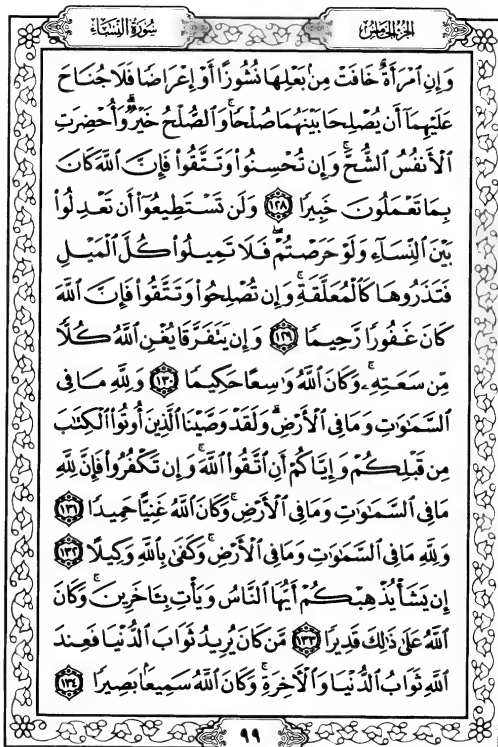 الجزء الخامس
سورة النساء
وَإِنِ ٱمْرَأَةٌ خَافَتْ مِنۢ بَعْلِهَا نُشُوزًا أَوْ إِعْرَاضًا فَلَا جُنَاحَ
عَلَيْهِمَآ أَن يُصْلِحَا بَيْنَهُمَا صُلْحًا ۚ وَٱلصُّلْحُ خَيْرٌ ۗ وَأُحْضِرَتِ
ٱلْأَنفُسُ ٱلشُّحَّ ۚ وَإِن تُحْسِنُوا۟ وَتَتَّقُوا۟ فَإِنَّ ٱللَّهَ كَانَ
بِمَا تَعْمَلُونَ خَبِيرًا ﴿١٢٨﴾ وَلَن تَسْتَطِيعُوٓا۟ أَن تَعْدِلُوا۟
بَيْنَ ٱلنِّسَآءِ وَلَوْ حَرَصْتُمْ ۖ فَلَا تَمِيلُوا۟ كُلَّ ٱلْمَيْلِ
فَتَذَرُوهَا كَٱلْمُعَلَّقَةِ ۚ وَإِن تُصْلِحُوا۟ وَتَتَّقُوا۟ فَإِنَّ ٱللَّهَ
كَانَ غَفُورًا رَّحِيمًا ﴿١٢٩﴾ وَإِن يَتَفَرَّقَا يُغْنِ ٱللَّهُ كُلًّا
مِّن سَعَتِهِۦ ۚ وَكَانَ ٱللَّهُ وَٰسِعًا حَكِيمًا ﴿١٣٠﴾ وَلِلَّهِ مَا فِى
ٱلسَّمَٰوَٰتِ وَمَا فِى ٱلْأَرْضِ ۗ وَلَقَدْ وَصَّيْنَا ٱلَّذِينَ أُوتُوا۟ ٱلْكِتَٰبَ
مِن قَبْلِكُمْ وَإِيَّاكُمْ أَنِ ٱتَّقُوا۟ ٱللَّهَ ۚ وَإِن تَكْفُرُوا۟ فَإِنَّ لِلَّهِ
مَا فِى ٱلسَّمَٰوَٰتِ وَمَا فِى ٱلْأَرْضِ ۚ وَكَانَ ٱللَّهُ غَنِيًّا حَمِيدًا ﴿١٣١﴾
وَلِلَّهِ مَا فِى ٱلسَّمَٰوَٰتِ وَمَا فِى ٱلْأَرْضِ ۚ وَكَفَىٰ بِٱللَّهِ وَكِيلًا ﴿١٣٢﴾
إِن يَشَأْ يُذْهِبْكُمْ أَيُّهَا ٱلنَّاسُ وَيَأْتِ بِـَٔاخَرِينَ ۚ وَكَانَ
ٱللَّهُ عَلَىٰ ذَٰلِكَ قَدِيرًا ﴿١٣٣﴾ مَّن كَانَ يُرِيدُ ثَوَابَ ٱلدُّنْيَا فَعِندَ
ٱللَّهِ ثَوَابُ ٱلدُّنْيَا وَٱلْءَاخِرَةِ ۚ وَكَانَ ٱللَّهُ سَمِيعًۢا بَصِيرًا ﴿١٣٤﴾
٩٩